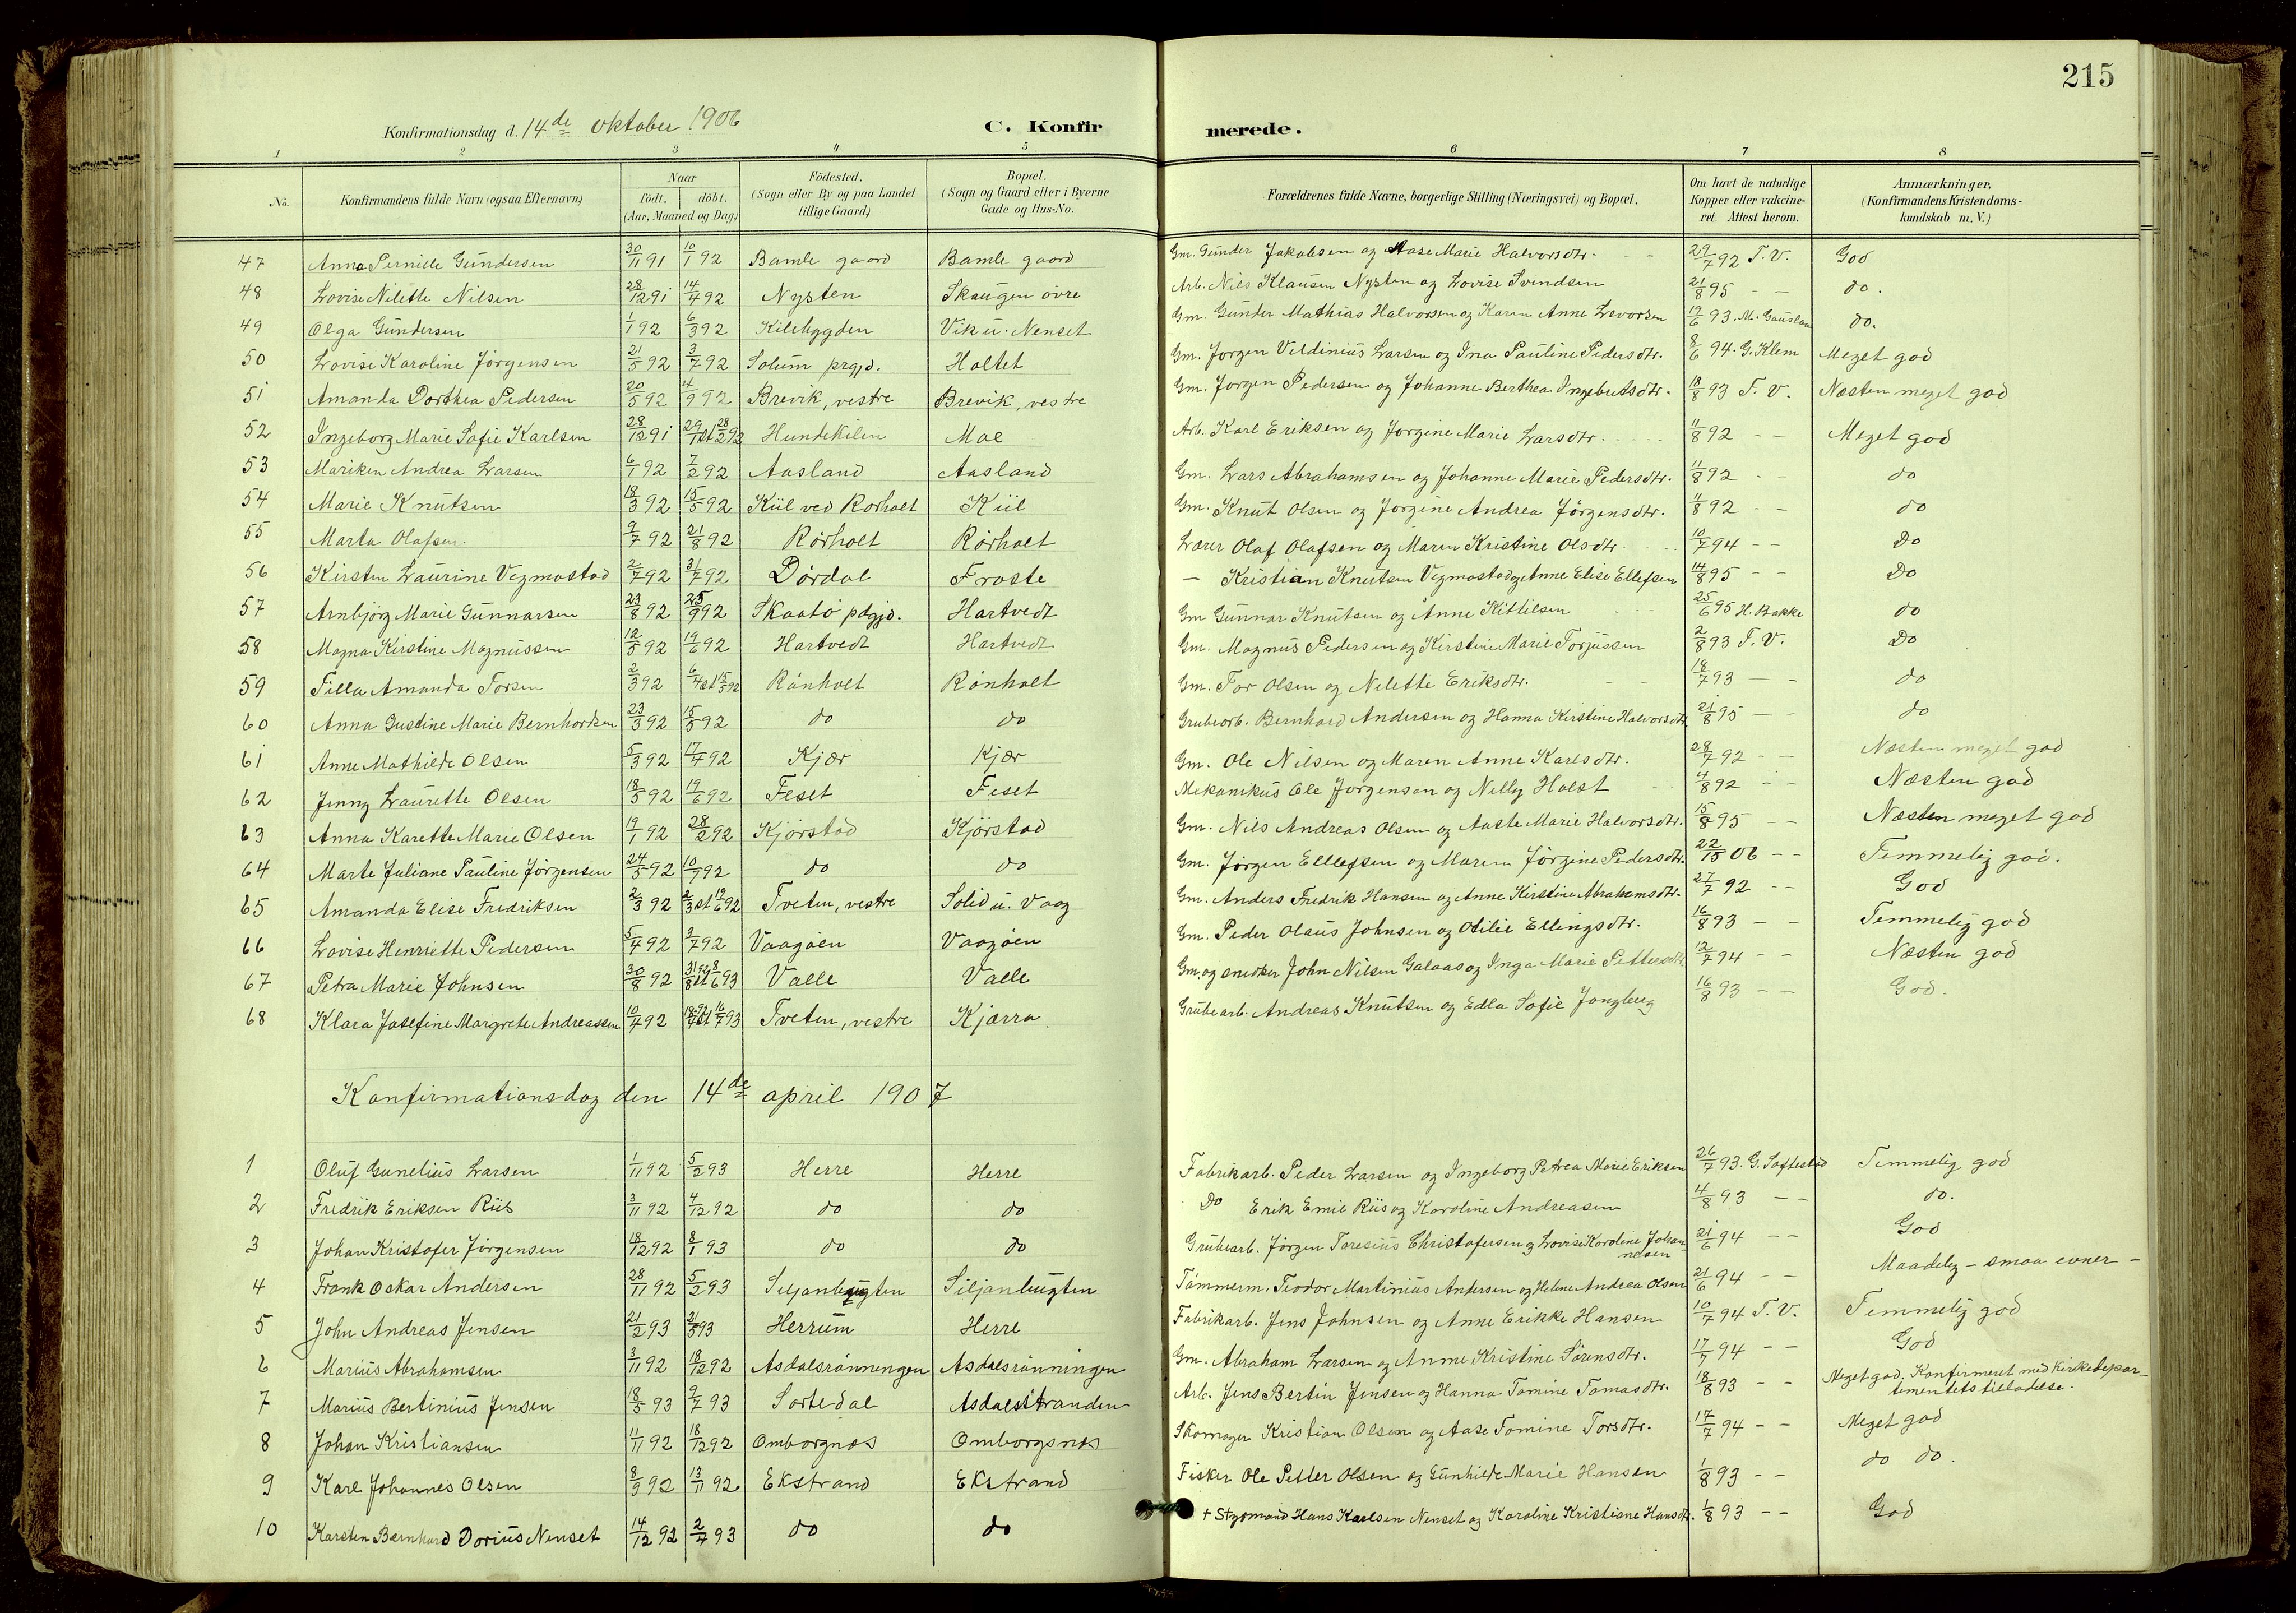 215
Konfirmationsdag d. 14de oktober 1906 C. Konfirmerede.
1 2 3 4 5 6 7 8
No. Konfirmandens fulde Navn (ogsaa Efternavn) Naar født. døbt. (Aar, Maaned og Dag) Fødested. (Sogn eller By og paa Landet tillige Gaard) Bopæl. (Sogn og Gaard eller i Byerne Gade og Hus-No. Forældrenes fulde Navne, borgerlige Stilling (Næringsvei) og Bopæl. Om havt de naturlige Kopper eller vakcineret. Attest herom. Anmærkninger. (Konfirmandens Kristendomskundskab m. V.)
47 Anna Pernille Gundersen 30/11 91 10/1 92 Bamle gaard Bamle gaard Gm. Gunder Jakobsen og Aase Marie Halvorsdtr. 29/7 92 T. V. God
48 Lovise Nilette Nilsen 28/12 91 14/4 92 Nysten Skaugen øvre Arb. Nils Klausen Nysten og Lovise Svendsen 21/8 95 - - do.
49 Olga Gundersen 1/1 92 6/3 92 Kilebygden Vik u. Nenset Gm. Gunder Mathias Halvorsen og Karen Anne Levorsen 19/6 93. M. Gauslaa do.
50 Lovise Karoline Jørgensen 21/5 92 3/7 92 Solum prgjd. Holtet Gm. Jørgen Veldinius Larsen og Ina Pauline Pedersdtr. 8/6 94. G. Klem Meget god
51 Amanda Dorthea Pedersen 20/5 92 4/9 92 Brevik, vestre Brevik, vestre Gm. Jørgen Pedersen og Johanne Berthea Ingebretsdtr. 18/8 93 T. V. Næsten meget god
52 Ingeborg Marie Sofie Karlsen 28/12 91 29/1 st 28/2 92 Hundekilen Moe Arb. Karl Eriksen og Jørgine Marie Larsdtr. 11/8 92 - - Meget god
53 Mariken Andrea Larsen 6/1 92 7/2 92 Aasland Aasland Gm. Lars Abrahamsen og Johanne Marie Pedersdtr. 11/8 92 - - do
54 Marie Knutsen 18/3 92 15/5 92 Kiil ved Rørholt Kiil Gm. Knut Olsen og Jørgine Andrea Jørgensdtr. 11/8 92 - - do
55 Marta Olafsen. 9/7 92 21/8 92 Rørholt Rørholt Lærer Olaf Olafsen og Maren Kristine Olsdtr. 10/7 94 - - Do
56 Kirsten Laurine Vegmostad 2/7 92 31/7 92 Dørdal Froste - Kristian Knutsen Vegmostad og Anne Elise Ellefsen 14/8 95 - - Do
57 Arnbjørg Marie Gunnarsen 23/8 92 25/9 92 Skaatø pdgjd. Hartvedt Gm Gunnar Knutsen og Anne Kittilsen 25/6 95 H. Bakke do
58 Magna Kirstine Magnussen 12/5 92 19/6 92 Hartvedt Hartvedt Gm. Magnus Pedersen og Kirstine Marie Torjussen 2/8 93 T. V. Do
59 Tilla Amanda Torsen 2/3 92 6/4 st 15/5 92 Rønholt Rønholt Gm. Tor Olsen og Nilette Eriksdtr. 18/7 93 - - do
60 Anna Gustine Marie Bernhardsen 23/3 92 15/5 92 do do Grubearb. Bernhard Andersen og Hanna Kirstine Halvorsdtr. 21/8 95 - - do
61 Anne Mathilde Olsen 5/3 92 17/4 92 Kjær Kjær Gm. Ole Nilsen og Maren Anne Karlsdtr. 28/7 92 - - Næsten meget god
62 Jenny Laurette Olsen 18/5 92 19/6 92 Feset Feset Mekanikus Ole Jørgensen og Nelly Holst 4/8 92 - - Næsten god
63 Anna Karette Marie Olsen 19/1 92 28/2 92 Kjørstad Kjørstad Gm. Nils Andreas Olsen og Aaste Marie Halvorsdtr. 15/8 95 - - Næsten meget god
64 Marte Juliane Pauline Jørgensen 24/5 92 10/7 92 do do Gm. Jørgen Ellefsen og Maren Jørgine Pedersdtr. 06 - - Temmelig god.
65 Amanda Elise Fredriksen 2/3 92 2/3 st 19/6 92 Tveten, vestre Solid u. Vaag Gm. Anders Fredrik Hansen og Anne Kirstine Abrahamsdtr. 27/7 92 - - God
66 Lovise Henriette Pedersen 5/4 92 3/7 92 Vaagøen Vaagøen Gm. Peder Olaus Johnsen og Otilie Ellingsdtr. 16/8 93 - - Temmelig god
67 Petra Marie Johnsen 30/8 92 31/8 92 st 8/6 93 Valle Valle Gm. og snedker John Nilsen Galaas og Inga Marie Pettersdtr. 12/7 94 - - Næsten god
68 Klara Josefine Margrete Andreassen 10/4 92 st 16/7 93 Tveten, vestre Kjærra Grubearb. Andreas Knutsen og Edla Sofie Jongberg 16/8 93 - - God.
Konfirmationsdag den 14de april 1907
1 Oluf Gunelius Larsen 1/11 92 5/2 93 Herre Herre Fabrikarb. Peder Larsen og Ingeborg Petrea Marie Eriksen 26/7 93. G. Saftestad Temmelig god
2 Fredrik Eriksen Riis 3/11 92 4/12 92 do do Do Erik Emil Riis og Karoline Andreasen 4/8 93 - - do.
3 Johan Kristofer Jørgensen 18/12 92 8/1 93 do do Grubearb. Jørgen Toresius Christofersen og Lovise Karoline Johannesen 21/6 94 - - God
4 Frank Oskar Andersen 28/11 92 5/2 93 Siljanbugten Siljanbugten Tømmerm. Teodor Martinius Andersen og Helene Andrea Olsen 21/6 94 - - Maadelig - smaa evner -
5 John Andreas Jensen 21/2 93 21/5 93 Herrum Herre Fabrikarb. Jens Johnsen og Anne Erikke Hansen 10/7 94 T. V. Temmelig god
6 Marius Abrahamsen 3/11 92 18/12 92 Asdalsrønnengen Asdalsrønningen Gm. Abraham Larsen og Anne Kristine Sørensdtr. 17/7 94 - - God
7 Marius Bertinius Jensen 18/5 93 9/7 93 Sortedal Asdalstranden Arb. Jens Bertin Jensen og Hanna Tomine Tomasdtr. 18/8 93 - - Meget god. Konfirmeret med kirkedepartementets tilladelse.
8 Johan Kristiansen 11/11 92 18/12 92 Omborgnes Omborgsnes Skomager Kristian Olsen og Aase Tomine Torsdtr. 17/7 94 - - Meget god
9 Karl Johannes Olsen 8/9 92 13/11 92 Ekstrand Ekstrand Fisker Ole Petter Olsen og Gunhilde Marie Hansen 1/8 93 - - do do.
10 Karsten Bernhard Dorius Nenset 14/12 92 2/4 93 do do + Styrmand Hans Karlsen Nenset og Karoline Kristiane Hansdtr. 1/8 93 - - God